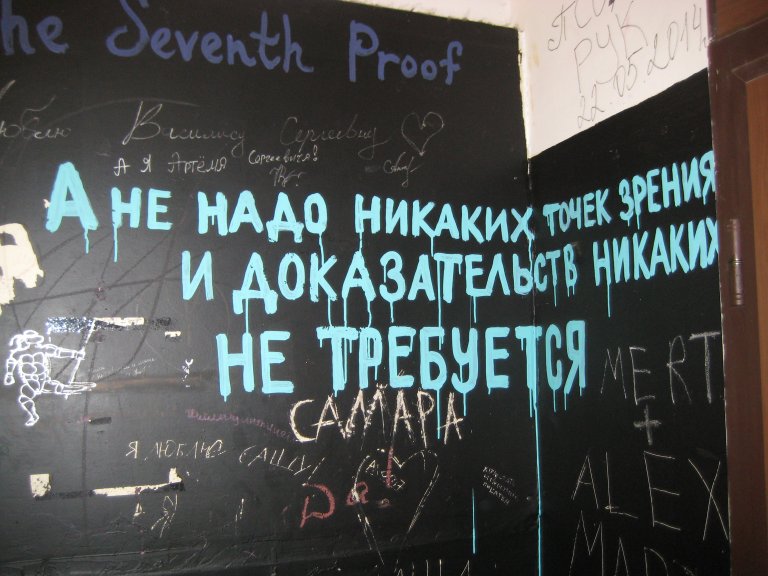 he Seventh Proof
ПСО
РУК
22.05.2014г
люблю Василису Сергеевну
А Я Артёма Сергеевича!
А НЕ НАДО НИКАКИХ ТОЧЕК ЗРЕНИЯ
И ДОКАЗАТЕЛЬСТВ НИКАКИХ
НЕ ТРЕБУЕТСЯ
САМАРА
MERT
+
ALEX
Я ЛЮБЛЮ САШУ!
Да!
А Я